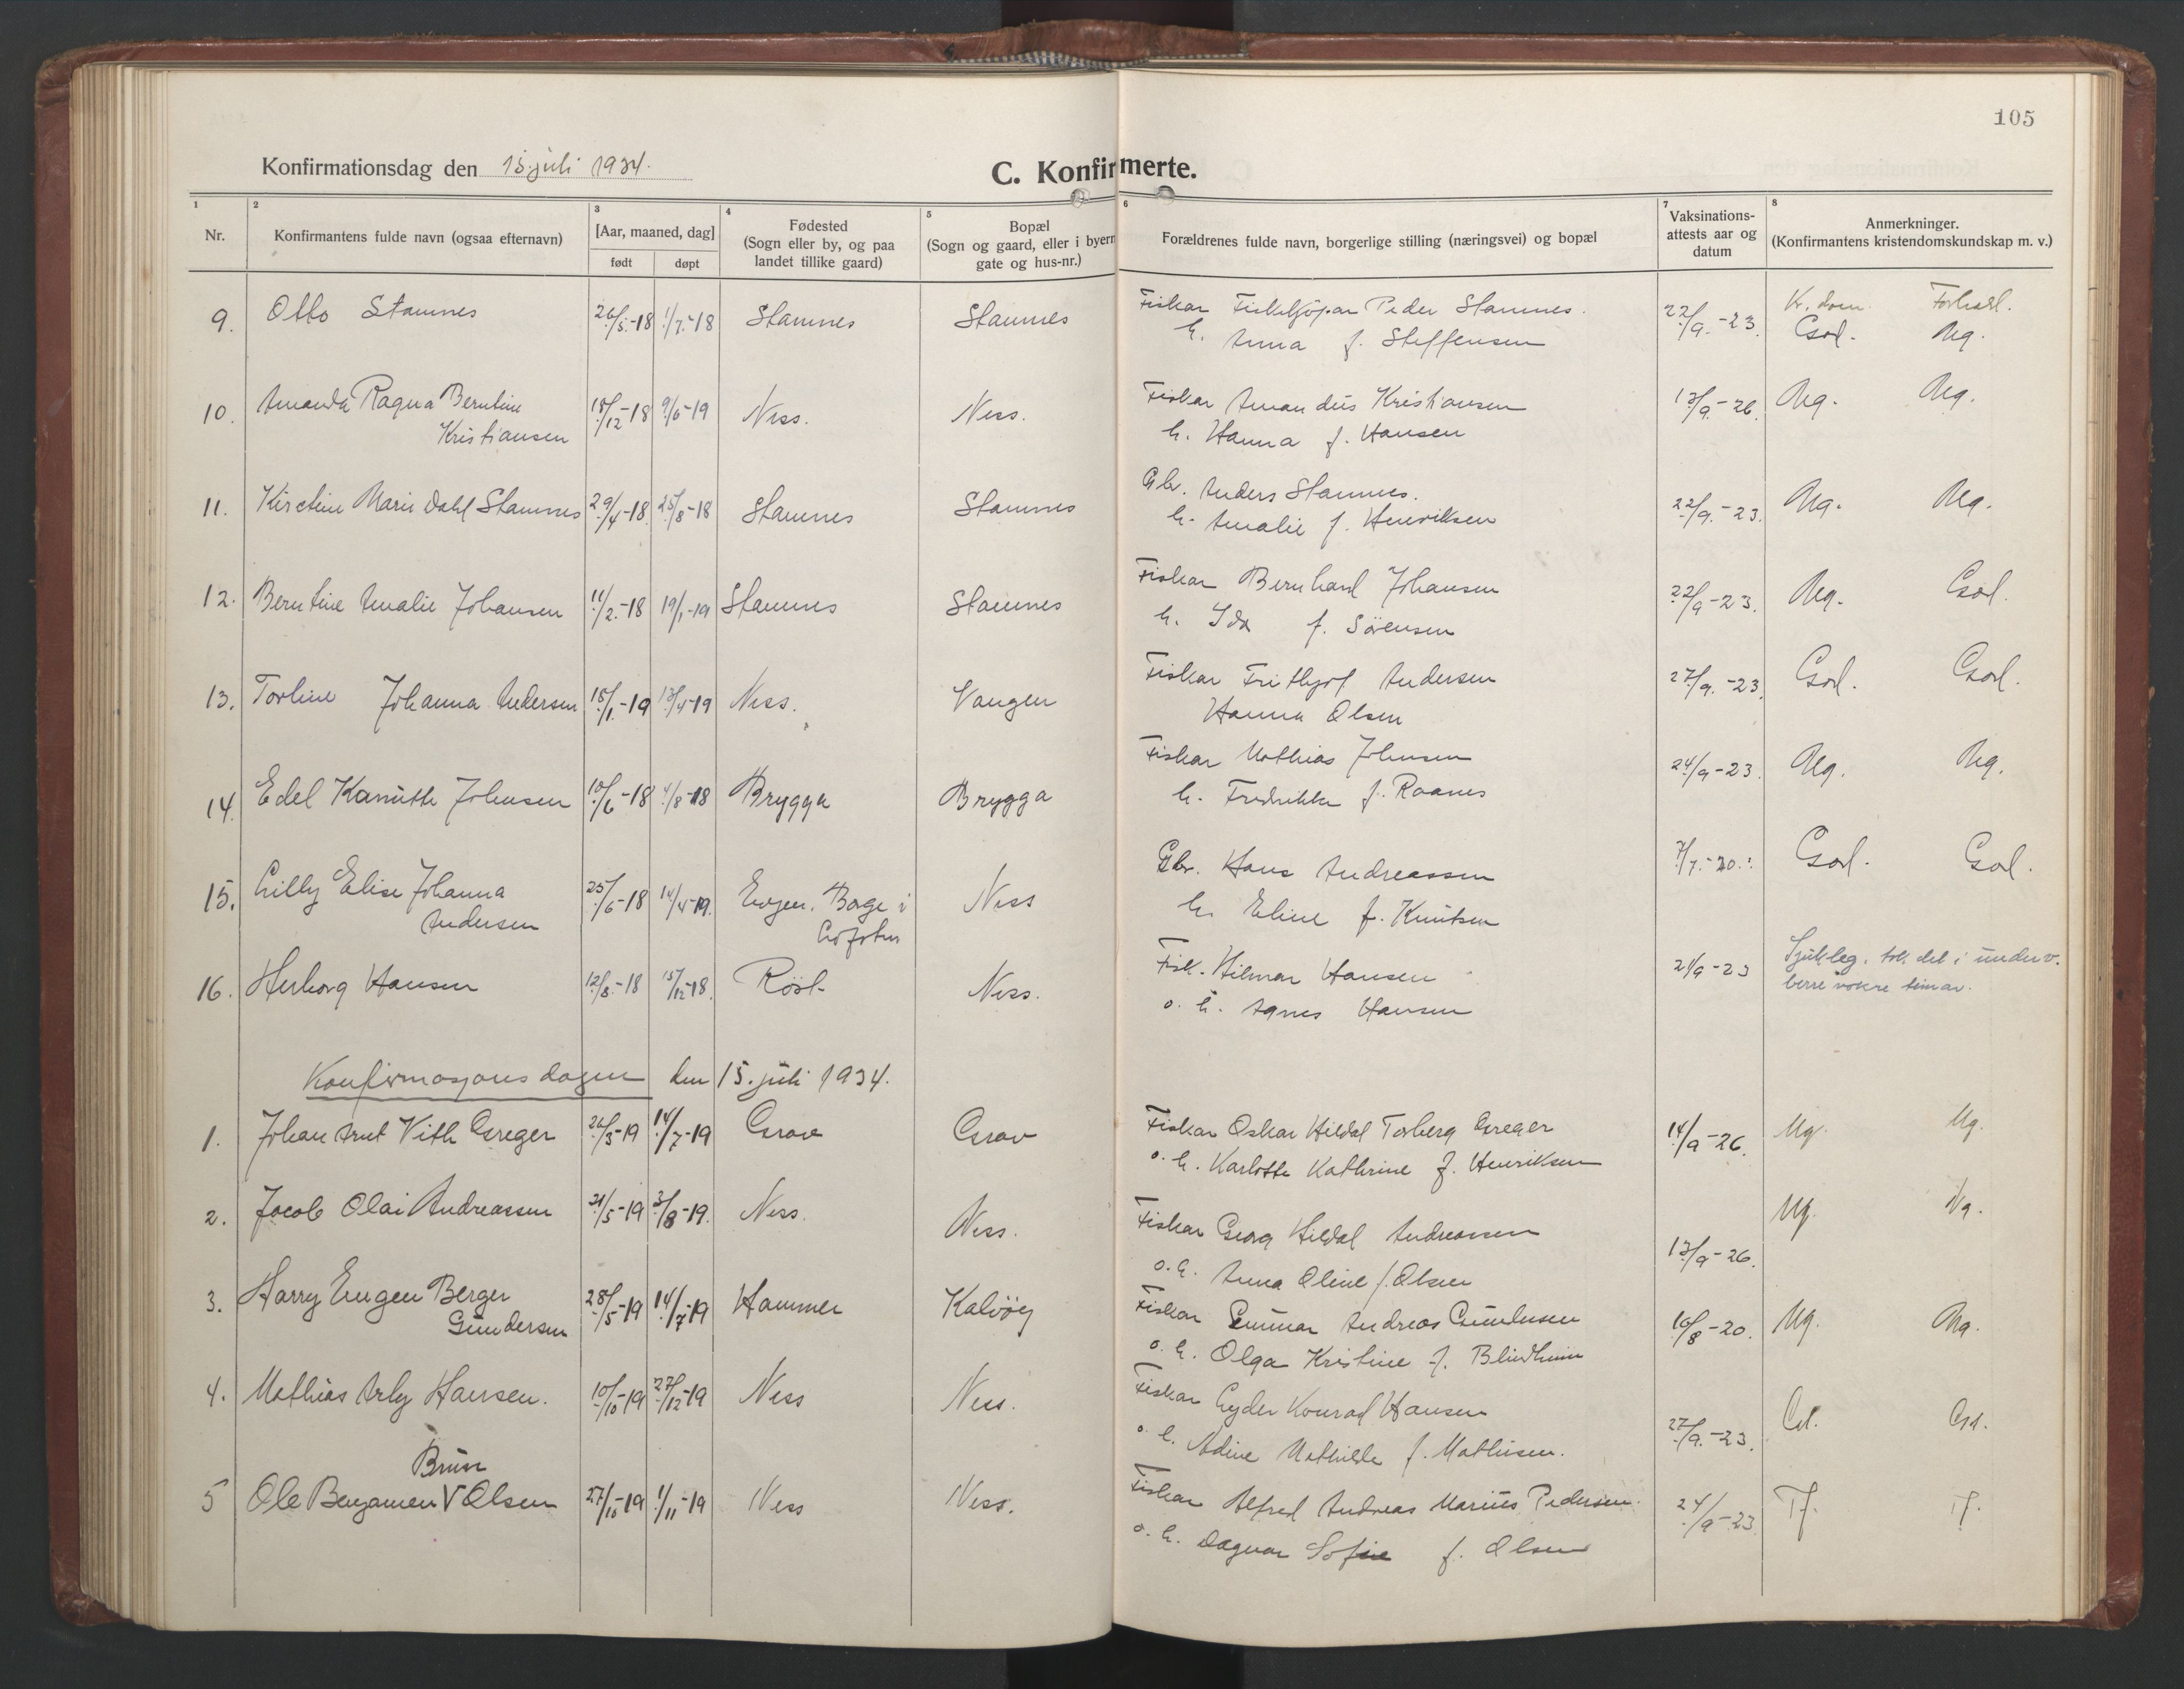 105
Konfirmationsdag den 15. juli 1934.
C. Konfirmerte.
1 2 3 4 5 6 7 8
Nr.
Konfirmantens fulde navn (ogsaa efternavn)
[Aar, maaned, dag]
født døpt
Fødested
(Sogn eller by, og paa
landet tillike gaard)
Bopæl
(Sogn og gaard, eller i byern
gate og hus-nr.)
Forældrenes fulde navn, borgerlige stilling (næringsvei) og bopæl
Vaksinations-
attests aar og
datum
Anmerkninger.
(Konfirmantens kristendomskundskap m. v.)
9. Otto Stamnes 26/5.-18 1/7.-18 Stamnes Stamnes Fiskar Fiskekjöpar Peder Stamnes. 22/9.-23. Kr. dom Forhold.
h. Anna f. Steffensen God. Mg.
10. Amanda Ragna Berntine 18/12-18 9/6-19 Ness. Ness. Fiskar Amandus Kristiansen 13/9.-26. Mg. Mg.
Kristiansen h. Hanna f. Hansen
11. Kirstine Marie Dahl Stamnes 29/4-18. 25/8-18 Stamnes Stamnes Gbr. Anders Stamnes. 22/9.-23. Mg. Mg.
h. Amalie f. Henriksen
12. Berntine Amalie Johansen 11/2.-18 19/1-19 Stamnes Stamnes Fiskar Bernhard Johansen 22/9-23. Mg. God.
h. Ida f. Sörensen
13. Torline Johanna Andersen 18/1.-19 13/4-19 Ness. Vangen Fiskar Frithjof Andersen 27/9.-23. God. God.
Hanna Olsen
14. Edel Kanutte Johnsen 10/6-18 4/8-18 Brygga Brygga Fiskar Mathias Johnsen 24/9-23. Mg. Mg.
h. Fredrikke f. Raanes
15. Lilly Elise Johanna 25/6-18 14/4-19. Evjen. Borge i Ness Gbr. Hans Andreassen 7/7.-20. God. God.
Andersen Lofoten h. Eline f. Knutsen
16. Herborg Hansen 12/8.-18 15/12-18. Röst Ness. Fisk. Hilmar Hansen 21/9-23 Sjukleg. tok del i underv.
o. h. Agnes Hansen berre nokre timar.
Konfirmasjonsdagen den 15. juli 1934.
1. Johan Arnt Vith Greger 26/3-19 14/7-19 Grav Grav Fiskar Oskar Hildal Torberg Greger 14/9-26. Mg. Mg.
o. h. Karlotte Kathrine f. Henriksen
2. Jacob Olai Andreassen 21/5-19 3/8-19. Ness. Ness. Fiskar Georg Hildal Andreassen 13/9-26. Mg. Ng.
o. h. Anna Oline f. Olsen
3. Harry Eugen Berger 28/5-19 14/7-19 Hammer Kalvöy Fiskar Gunnar Andreas Gundersen 16/8-20. Mg. Mg.
Gundersen o. h. Olga Kristine f. Blindheim
4. Mathias Arly Hansen. 10/10-19 27/12-19 Ness Ness. Fiskar Gyder Konrad Hansen 27/9.-23. Gd. Gd.
o. h. Adine Mathilde f. Mathisen.
Brun
5 Ole Benjamen V Olsen 27/10-19 1/11-19 Ness Ness. Fiskar Alfred Andreas Marius Pedersen. 24/9-23. Tf. Tf.
o. h. Dagmar Sofie f. Olsen